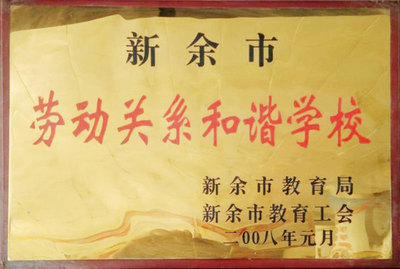 新余市
劳动关系和谐学校
新余市教育局
新余市教育工会
二00八年元月